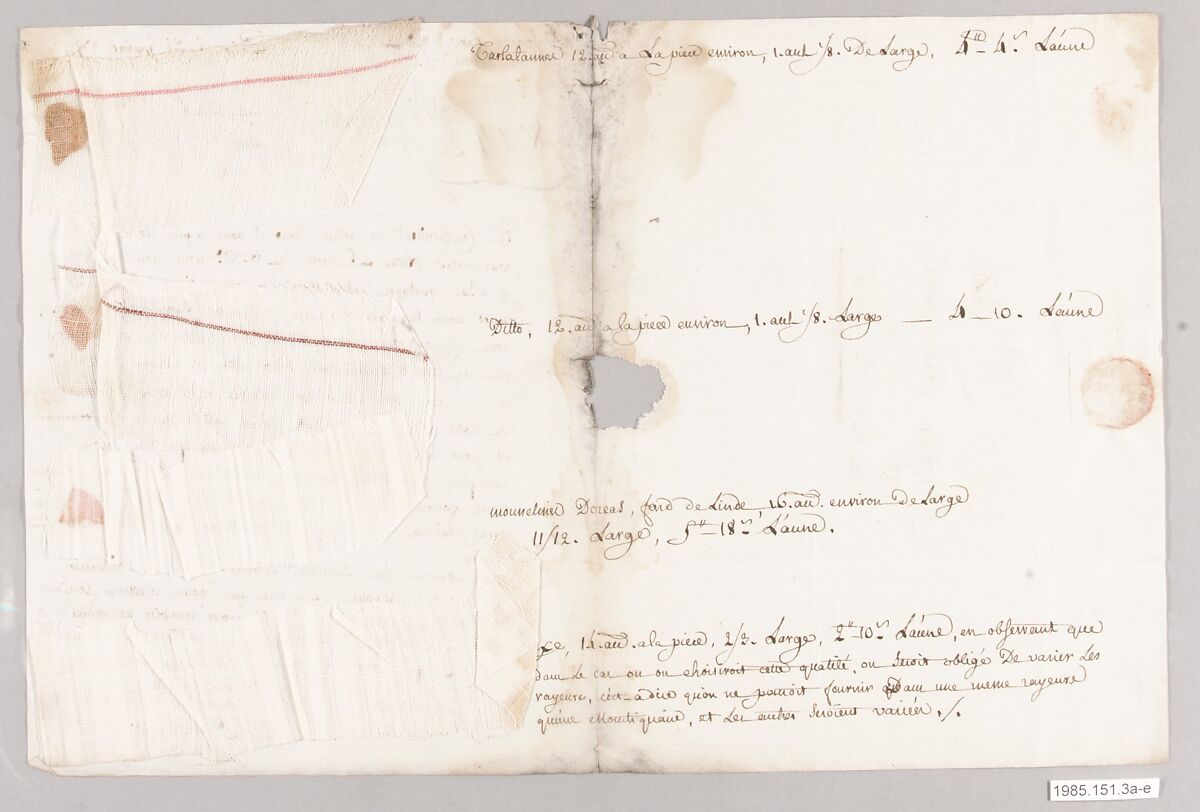 Tarlatannes 12. au. a La piece environ, 1. aul 1/8. De Large, 4tt 4s. L'aune
Ditto, 12. au. a la piece environ, 1. aul 1/8. Large — 4 — 10. L'aune
mousseline Doreas, fond de Linde 16. au. environ De Large
11/12. Large, 5tt 18s. L'aune.
14. au. a la piece, 2/3. Large, 2tt 10s. L'aune, en observant que
dans le cas ou on choisiroit cette qualité, on seroit obligé De varier Les
rayeure, c'est a dire qu'on ne pouroit fournir dans une meme rayeure
qu'une et Les autres seroient variées ./.
1985.151.3a-e